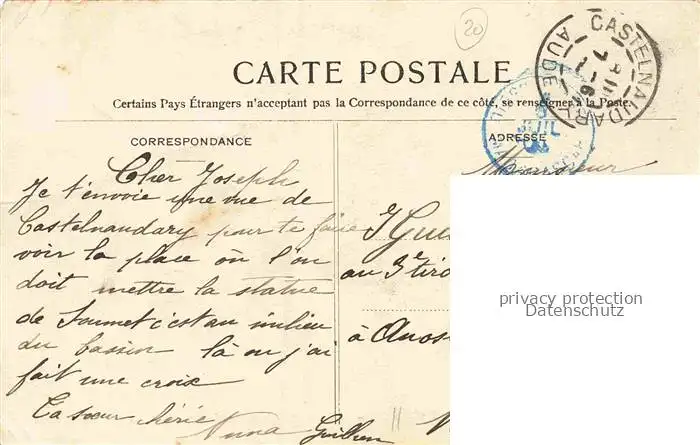 20
CASTELNAUDARY
AUDE
CARTE POSTALE
Certains Pays Étrangers n'acceptant pas la Correspondance de ce côté, se renseigner à la Poste.
CORRESPONDANCE
Cher Joseph
Je t'envoie une vue de
Castelnaudary pour te faire
voir la place où l'on
doit mettre la statue
de Soumet c'est au milieu
du bassin là ou j'ai
fait une croix
Ta sœur chérie
ADRESSE
JUIL
Monsieur
J Gui
au 3e tiro
à
privacy protection
Datenschutz